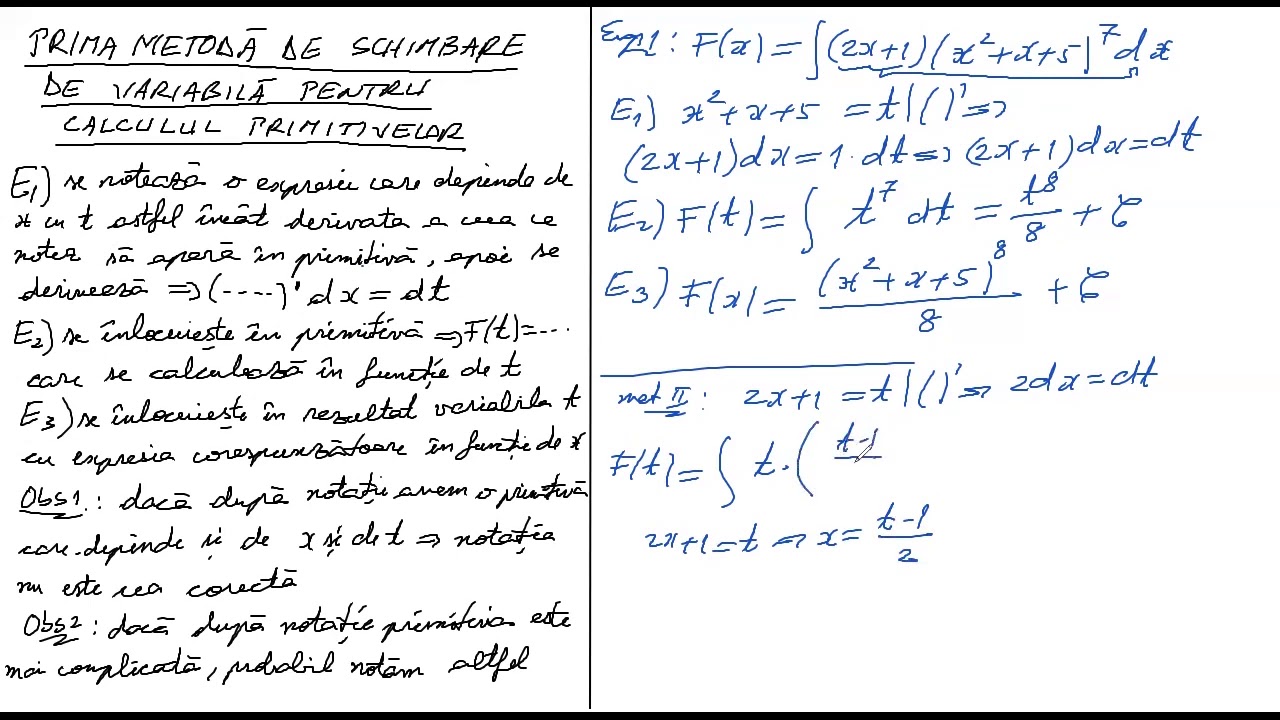 PRIMA METODĂ DE SCHIMBARE
DE VARIABILĂ PENTRU
CALCULUL PRIMITIVELOR
E₁) se notează o expresie care depinde de
x cu t astfel încât derivata a ceea ce
notez să apară în primitivă, apoi se
derivează ⇒ (----)' dx = dt
E₂) se înlocuiește în primitivă ⇒ F(t)=---
care se calculează în funcție de t
E₃) se înlocuiește în rezultat variabila t
cu expresia corespunzătoare în funcție de x
Obs1: dacă după notație avem o primitivă
care depinde și de x și de t ⇒ notația
nu este cea corectă
Obs2: dacă după notație primitiva este
mai complicată, probabil notăm altfel
Exp1: F(x) = ∫(2x+1)(x²+x+5)⁷ dx
E₁) x²+x+5 = t |( )' ⇒
(2x+1)dx = 1·dt ⇒ (2x+1)dx = dt
E₂) F(t) = ∫ t⁷ dt = t⁸/8 + C
E₃) F(x) = (x²+x+5)⁸/8 + C
met II: 2x+1 = t |( )' ⇒ 2dx = dt
F(t) = ∫ t·( t-1
2x+1 = t ⇒ x = (t-1)/2